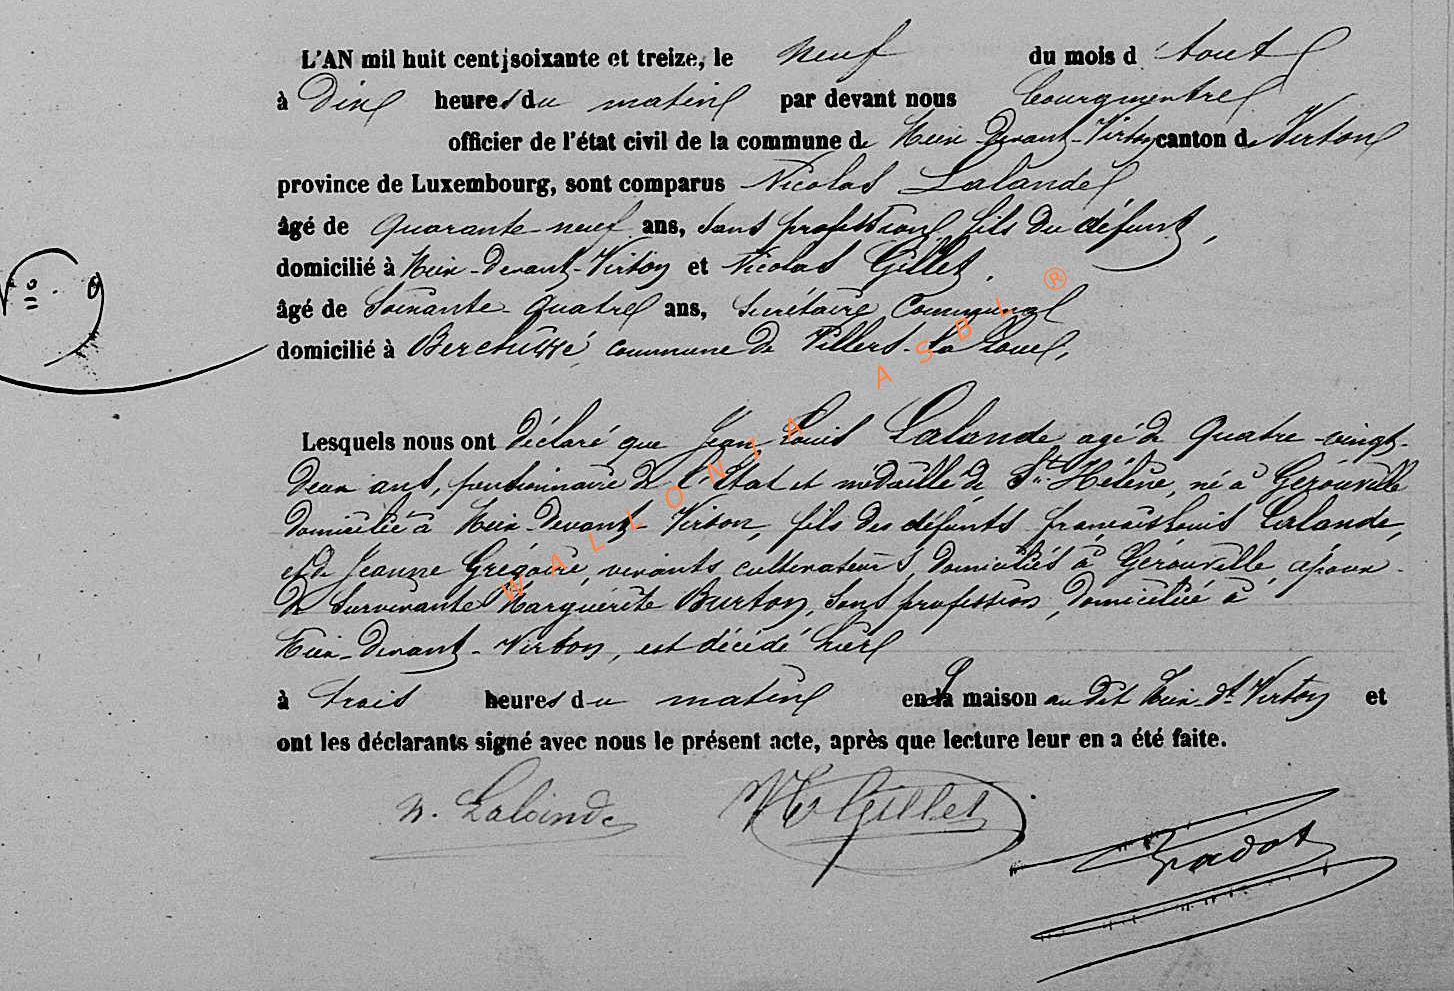 L'AN mil huit cent soixante et treize, le neuf du mois d'aout
à Dix heures du matin par devant nous bourgmestre
officier de l'état civil de la commune de Meix-Devant-Virton canton de Virton
province de Luxembourg, sont comparus Nicolas Lalande
âgé de Quarante-neuf ans, sans profession, fils du défunt,
domicilié à Meix-Devant-Virton et Nicolas Gillet,
âgé de Soixante-Quatre ans, Secrétaire Communal
domicilié à Berchiwé, commune de Villers-la Loue,
N° 9
Lesquels nous ont déclaré que Jean Louis Lalande agé de Quatre-vingt-
Deux ans, pensionnaire de l'Etat et médaillé de Ste Hélène, né à Gérouville
domicilié à Meix-Devant-Virton, fils des défunts françois Louis Lalande,
et de Jeanne Grégoire, vivants cultivateurs, domiciliés à Gérouville, époux-
de survivante Marguérite Burton, sans profession, domiciliée à
Meix-Devant-Virton, est décédé hier
à trois heures du matin en la maison au dit Meix-Dt Virton et
ont les déclarants signé avec nous le présent acte, après que lecture leur en a été faite.
N. Lalande Gillet
WALLONIA ASBL ®